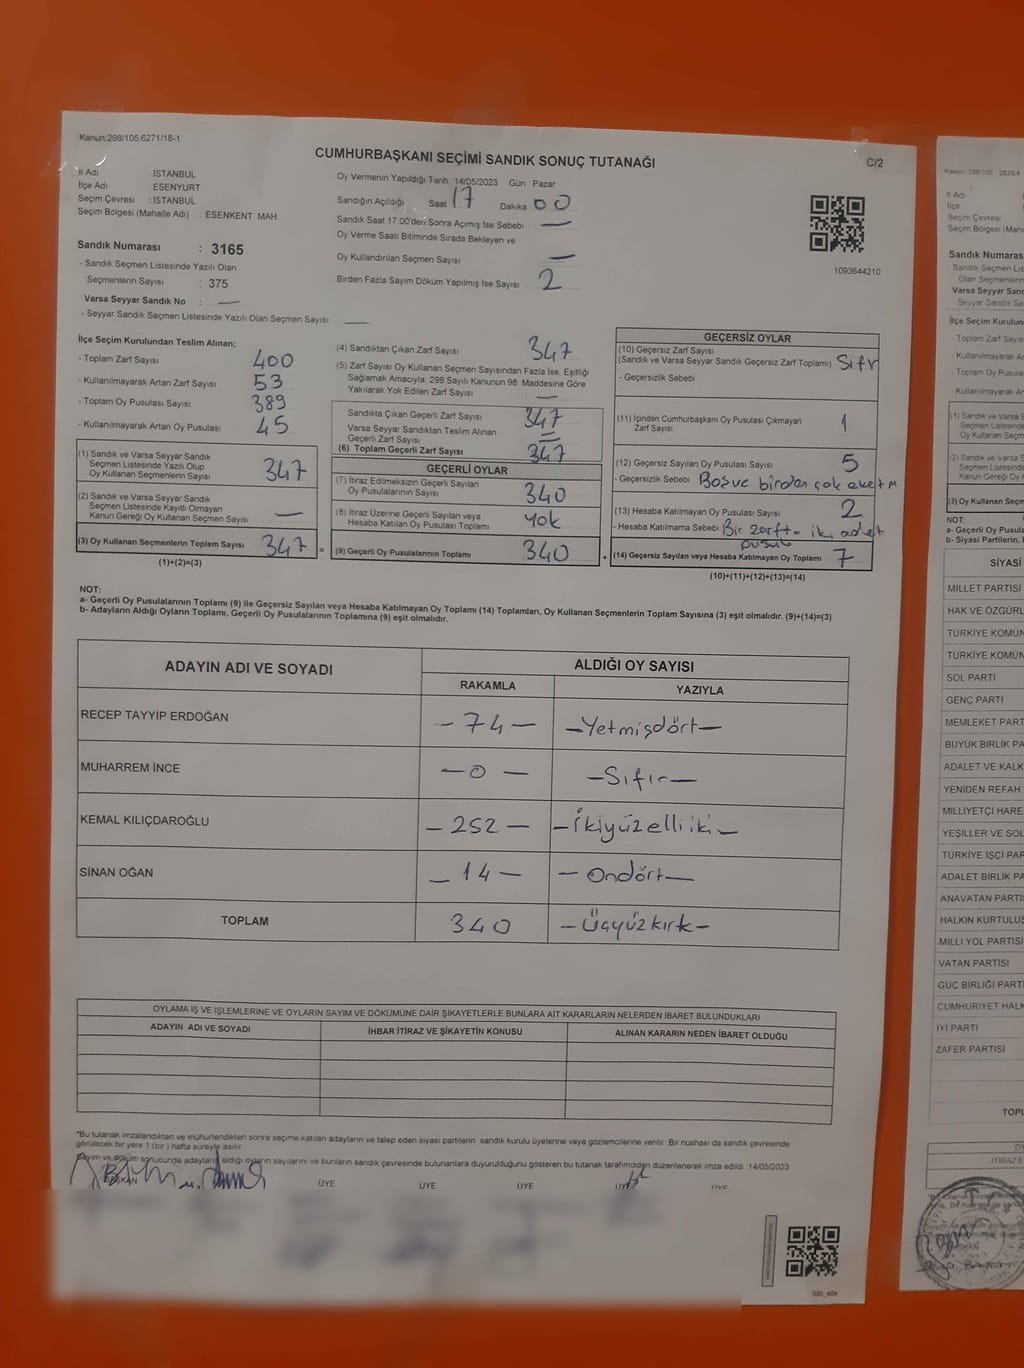 Kanun:298/105.6271/18-1
CUMHURBAŞKANI SEÇİMİ SANDIK SONUÇ TUTANAĞI
C/2
İl Adı İSTANBUL
İlçe Adı ESENYURT
Seçim Çevresi :İSTANBUL
Seçim Bölgesi (Mahalle Adı) : ESENKENT MAH
Sandık Numarası : 3165
- Sandık Seçmen Listesinde Yazılı Olan
Seçmenlerin Sayısı : 375
Varsa Seyyar Sandık No : —
- Seyyar Sandık Seçmen Listesinde Yazılı Olan Seçmen Sayısı —
Oy Vermenin Yapıldığı Tarih 14/05/2023 Gün Pazar
Sandığın Açıldığı Saat 17 Dakika 00
Sandık Saat 17.00'den Sonra Açımış İse Sebebi —
Oy Verme Saati Bitiminde Sırada Bekleyen ve
Oy Kullandırılan Seçmen Sayısı —
Birden Fazla Sayım Döküm Yapılmış İse Sayısı 2
1093644210
İlçe Seçim Kurulundan Teslim Alınan;
- Toplam Zarf Sayısı 400
- Kullanılmayarak Artan Zarf Sayısı 53
- Toplam Oy Pusulası Sayısı 389
- Kullanılmayarak Artan Oy Pusulası 45
(1) Sandık ve Varsa Seyyar Sandık
Seçmen Listesinde Yazılı Olup
Oy Kullanan Seçmenlerin Sayısı 347
(2) Sandık ve Varsa Seyyar Sandık
Seçmen Listesinde Kayıtlı Olmayan
Kanun Gereği Oy Kullanan Seçmen Sayısı —
(3) Oy Kullanan Seçmenlerin Toplam Sayısı 347 =
(1)+(2)=(3)
(4) Sandıktan Çıkan Zarf Sayısı 347
(5) Zarf Sayısı Oy Kullanan Seçmen Sayısından Fazla İse, Eşitliği
Sağlamak Amacıyla, 298 Sayılı Kanunun 98. Maddesine Göre
Yakılarak Yok Edilen Zarf Sayısı —
Sandıkta Çıkan Geçerli Zarf Sayısı 347
Varsa Seyyar Sandıktan Teslim Alınan
Geçerli Zarf Sayısı —
(6) Toplam Geçerli Zarf Sayısı 347
GEÇERLİ OYLAR
(7) İtiraz Edilmeksizin Geçerli Sayılan
Oy Pusulalarının Sayısı 340
(8) İtiraz Üzerine Geçerli Sayılan veya
Hesaba Katılan Oy Pusulası Toplamı yok
(9) Geçerli Oy Pusulalarının Toplamı 340 +
GEÇERSİZ OYLAR
(10) Geçersiz Zarf Sayısı
(Sandık ve Varsa Seyyar Sandık Geçersiz Zarf Toplamı) Sıfr
- Geçersizlik Sebebi
(11) İçinden Cumhurbaşkanı Oy Pusulası Çıkmayan
Zarf Sayısı 1
(12) Geçersiz Sayılan Oy Pusulası Sayısı 5
- Geçersizlik Sebebi Boş ve birden çok evet m
(13) Hesaba Katılmayan Oy Pusulası Sayısı 2
- Hesaba Katılmama Sebebi Bir zarfta iki adet
pusula
(14) Geçersiz Sayılan veya Hesaba Katılmayan Oy Toplamı 7
(10)+(11)+(12)+(13)=(14)
NOT:
a- Geçerli Oy Pusulalarının Toplamı (9) ile Geçersiz Sayılan veya Hesaba Katılmayan Oy Toplamı (14) Toplamları, Oy Kullanan Seçmenlerin Toplam Sayısına (3) eşit olmalıdır. (9)+(14)=(3)
b- Adayların Aldığı Oyların Toplamı, Geçerli Oy Pusulalarının Toplamına (9) eşit olmalıdır.
ADAYIN ADI VE SOYADI ALDIĞI OY SAYISI
RAKAMLA YAZIYLA
RECEP TAYYİP ERDOĞAN – 74 – – Yetmişdört –
MUHARREM İNCE – 0 – – Sıfır –
KEMAL KILIÇDAROĞLU – 252 – – İkiyüzelliiki –
SİNAN OĞAN – 14 – – Ondört –
TOPLAM 340 – Üçyüzkırk –
OYLAMA İŞ VE İŞLEMLERİNE VE OYLARIN SAYIM VE DÖKÜMÜNE DAİR ŞİKAYETLERLE BUNLARA AİT KARARLARIN NELERDEN İBARET BULUNDUKLARI
ADAYIN ADI VE SOYADI İHBAR İTİRAZ VE ŞİKAYETİN KONUSU ALINAN KARARIN NEDEN İBARET OLDUĞU
*Bu tutanak imzalandıktan ve mühürlendikten sonra seçime katılan adayların ve talep eden siyasi partilerin sandık kurulu üyelerine veya gözlemcilerine verilir. Bir nüshası da sandık çevresinde
görülecek bir yere 1 (bir) hafta süreyle asılır.
Sayım ve döküm sonucunda adayların aldığı oyların sayılarını ve bunların sandık çevresinde bulunanlara duyurulduğunu gösteren bu tutanak tarafımızdan düzenlenerek imza edildi. 14/05/2023
BAŞKAN ÜYE ÜYE ÜYE ÜYE ÜYE
İl Adı
İlçe
Seçim Çevresi
Seçim Bölgesi (Maha
Sandık Numaras
- Sandık Seçmen Lis
Olan Seçmenlerin
Varsa Seyyar Sand
- Seyyar Sandık Se
İlçe Seçim Kurulun
- Toplam Zarf Sayıs
- Kullanılmayarak
- Toplam Oy Pusul
- Kullanılmayarak
(1) Sandık ve Varsa
Seçmen Listesinde
Oy Kullanan Seçm
(2) Sandık ve Varsa S
Seçmen Listesinde
Kanun Gereği Oy K
(3) Oy Kullanan Seçmen
NOT:
a- Geçerli Oy Pusula
b- Siyasi Partilerin,
SİYASİ
MİLLET PARTİSİ
HAK VE ÖZGÜRL
TÜRKİYE KOMÜN
TÜRKİYE KOMÜN
SOL PARTİ
GENÇ PARTİ
MEMLEKET PART
BÜYÜK BİRLİK PA
ADALET VE KALK
YENİDEN REFAH
MİLLİYETÇİ HARE
YEŞİLLER VE SOL
TÜRKİYE İŞÇİ PAR
ADALET BİRLİK PA
ANAVATAN PARTİS
HALKIN KURTULUŞ
MİLLİ YOL PARTİSİ
VATAN PARTİSİ
GÜÇ BİRLİĞİ PARTİ
CUMHURİYET HALK
İYİ PARTİ
ZAFER PARTİSİ
TOPL
İTİRAZ E